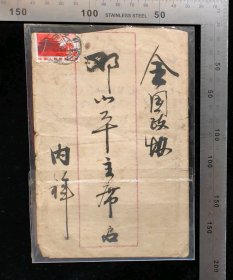 150 100 STAINLESS STEEL 50
全国政协
邓小平主席启
内详
50
100
150
200